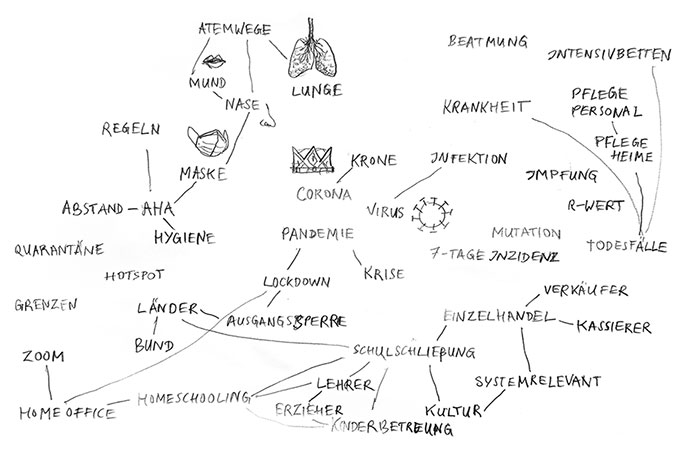 ATEMWEGE
BEATMUNG
INTENSIVBETTEN
MUND
LUNGE
NASE
PFLEGE
PERSONAL
KRANKHEIT
REGELN
PFLEGE
HEIME
MASKE
KRONE
INFEKTION
IMPFUNG
CORONA
R-WERT
ABSTAND – AHA
VIRUS
HYGIENE
PANDEMIE
MUTATION
TODESFÄLLE
QUARANTÄNE
7-TAGE INZIDENZ
HOTSPOT
LOCKDOWN
KRISE
VERKÄUFER
GRENZEN
LÄNDER
AUSGANGSSPERRE
EINZELHANDEL
KASSIERER
BUND
SCHULSCHLIEßUNG
ZOOM
LEHRER
SYSTEMRELEVANT
HOMEOFFICE
HOMESCHOOLING
ERZIEHER
KULTUR
KINDERBETREUUNG